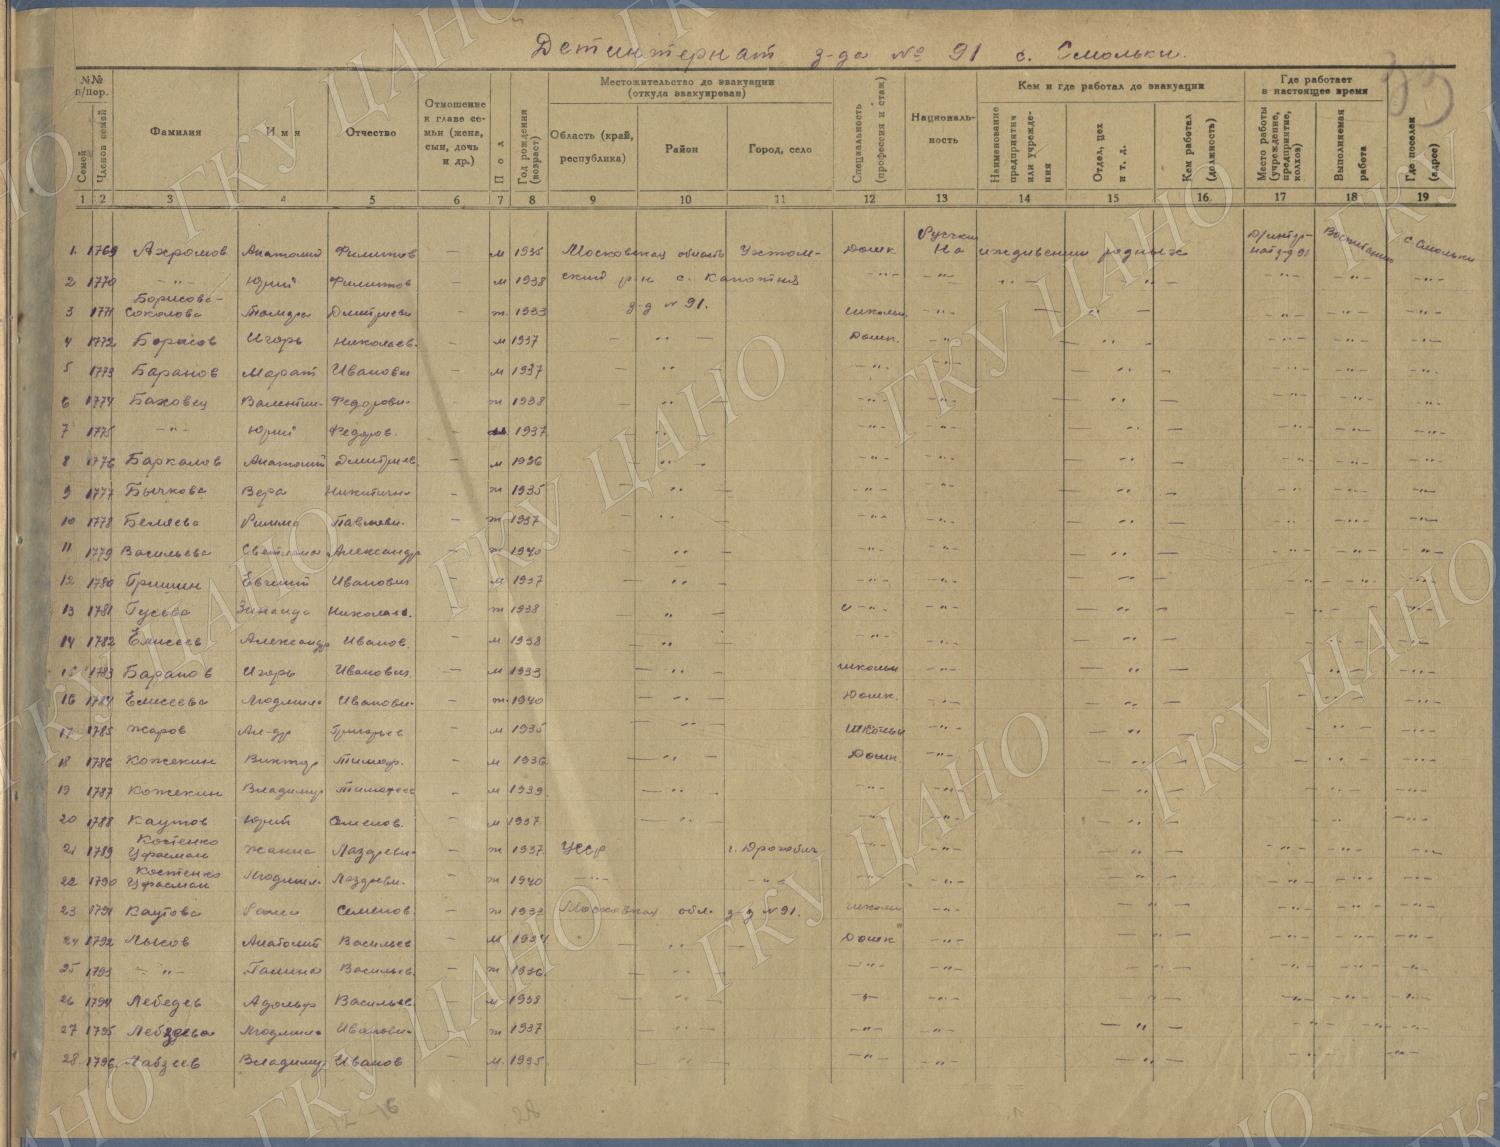 Детинтернат з-да № 91 с. Смольки.
33
№№ п/пор.
Семей
Членов семей
Фамилия
Имя
Отчество
Отношение к главе семьи (жена, сын, дочь и др.)
Пол
Год рождения (возраст)
Местожительство до эвакуации (откуда эвакуирован)
Область (край, республика)
Район
Город, село
Специальность (профессия и стаж)
Националь-ность
Кем и где работал до эвакуации
Наименование предприятия или учреждения
Отдел, цех и т. д.
Кем работал (должность)
Где работает в настоящее время
Место работы (учреждение, предприятие, колхоз)
Выполняемая работа
Где поселен (адрес)
1 2 3 4 5 6 7 8 9 10 11 12 13 14 15 16 17 18 19
1. 1769 Ахромов Анатолий Филиппов — м 1935 Московская область Ухтом- Дошк Русские На иждивении родных Воспитанник с. Смольки
2 1770 —"— Юрий Филиппов — м 1938 ский р-н с. Капотня —"— —"—
3 1771 Борисова-Соколова Тамара Дмитриевн — ж. 1933 з-д № 91. школьн. —"—
4 1772 Борисов Игорь Николаев. — м 1937 — " — Дошк. —"—
5 1773 Баранов Марат Иванович — м 1937 — " — —"— —"—
6 1774 Баховец Валентин. Федоровн. — ж 1938 — " — —"— —"—
7 1775 —"— Юрий Федоров. — м 1937 — " — —"— —"—
8 1776 Баркалов Анатолий Дмитриев. — м 1936 — " — —"— —"—
9 1777 Бычкова Вера Никитична — ж 1935 — " — —"— —"—
10 1778 Беляева Римма Павловн. — ж 1937 — " — —"— —"—
11 1779 Васильева Светлана Александр — ж 1940 — " — —"— —"—
12 1780 Гришин Евгений Иванович — м 1937 — " — —"— —"—
13 1781 Гусева Зинаида Николаев. — ж 1938 — " — —"— —"—
14 1782 Елисеев Александр Иванов. — м 1938 — " — —"— —"—
15 1783 Баранов Игорь Иванович — м 1933 — " — школьн —"—
16 1784 Елисеева Людмила Ивановн. — ж. 1940 — " — Дошк. —"—
17 1785 Жаров Ал-др Григорьев — м 1935 — " — школьн —"—
18 1786 Кожекин Виктор Тимоф. — м 1936 — " — Дошк. —"—
19 1787 Кожекин Владимир Тимофеев — м 1939 — " — —"— —"—
20 1788 Каутов Юрий Семенов. — м 1937 — " — —"— —"—
21 1789 Костенко Цфасман Жанна Лазаревн. — ж 1937 УССР г. Дрогобич —"— —"—
22 1790 Костенко Цфасман Людмила Лазаревн. — ж 1940 —"— —"— —"— —"—
23 1791 Каутова Семенов. — ж 1932 Московская обл. з-д № 91. школьн —"—
24 1792 Лысов Анатолий Васильев — м 1934 — " — Дошк —"—
25 1793 —"— Галина Васильев. — ж 1936 — " — —"— —"—
26 1794 Лебедев Адольф Васильев — м 1938 — " — —"— —"—
27 1795 Лебедева Людмила Ивановн. — ж 1937 — " — —"— —"—
28. 1796 Владимир Иванов — м. 1935 — " — —"— —"—
16
28
ГКУ ЦАНО